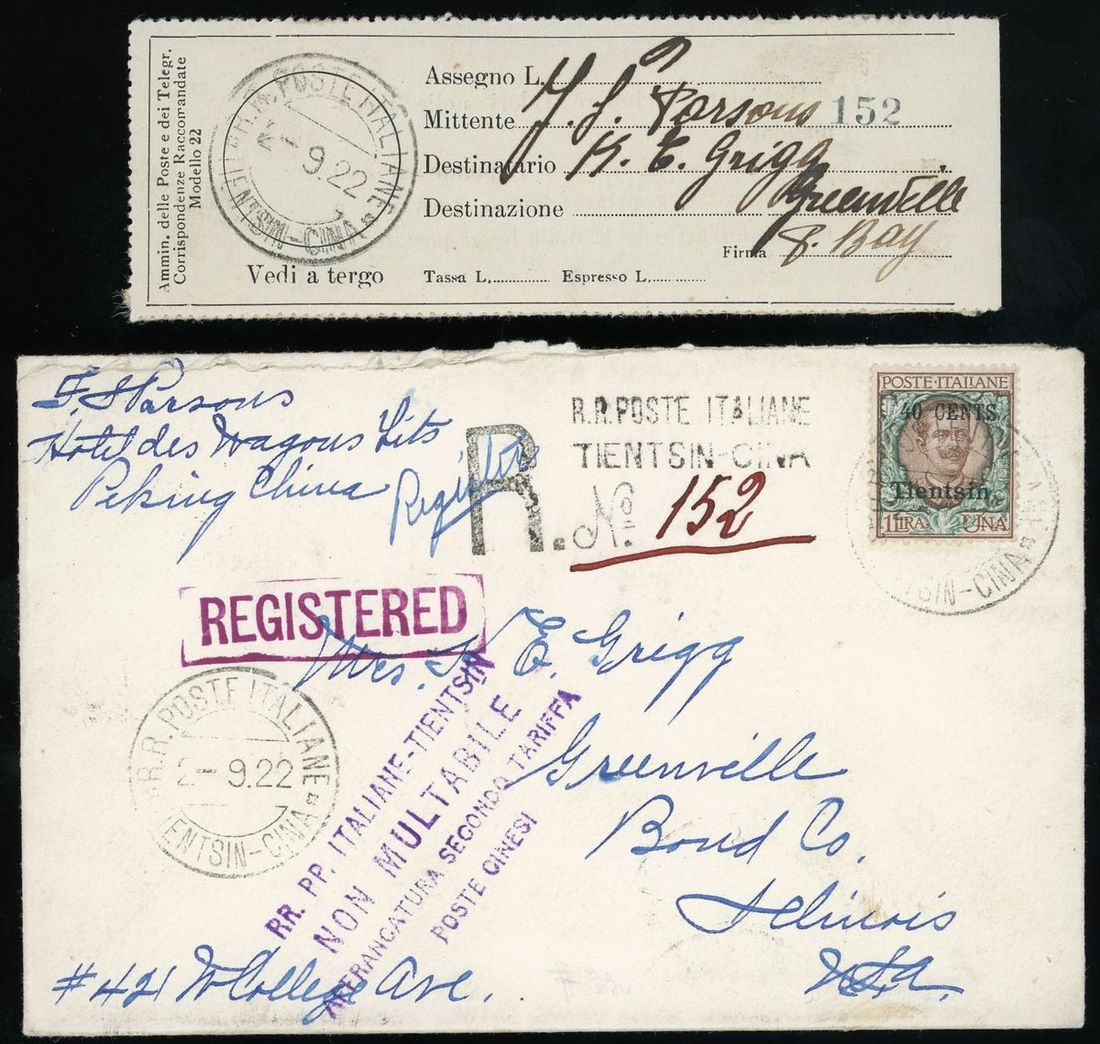 Ammin. delle Poste e dei Telegr.
Corrispondenze Raccomandate
Modello 22
RR. POSTE ITALIANE
9.22
TIENTSIN-CINA
Assegno L.
Mittente J. S. Parsons 152
Destinatario K. E. Grigg
Destinazione Greenville
Firma P. Bay
Vedi a tergo Tassa L. Espresso L.
J. S Parsons
Hotel des Wagons Lits
Peking China
R.R. POSTE ITALIANE
TIENTSIN-CINA
R. No 152
POSTE·ITALIANE
40 CENTS
Tientsin
1 LIRA UNA
SIN-CINA
REGISTERED
RR. POSTE ITALIANE
2-9.22
TIENTSIN-CINA
Mrs. K E. Grigg
Greenville
Bond Co.
Illinois
USA.
RR. PP. ITALIANE-TIENTSIN
NON MULTABILE
AFFRANCATURA SEGONDO TARIFFA
POSTE CINESI
#421 W College Ave.